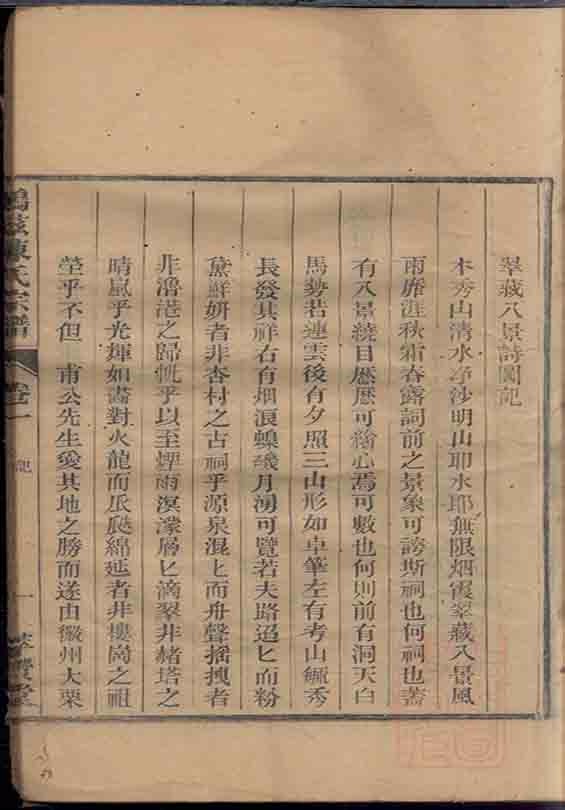 翠藏八景詩圖記
木秀山清水净沙明山耶水耶無限烟霞翠藏八景風
雨厓涯秋霜春露詞前之景象可誇斯祠也何祠也蓋
有八景繞目歷歷可繪心焉可數也何則前有洞天白
馬勢若連雲後有夕照三山形如卓筆左有考山毓秀
長發其祥右有烟浪蟂磯月湧可覽若夫路迢匕而粉
黛鮮妍者非杏村之古祠乎源泉混匕而舟聲搖拽者
非澛港之歸帆乎以至煙雨溟濛層匕滴翠非赭塔之
晴嵐乎光輝如畵對火龍而瓜瓞綿延者非樓崗之祖
塋乎不但 甫公先生愛其地之勝而遂由徽州大栗
陳氏宗譜
卷一
記
一